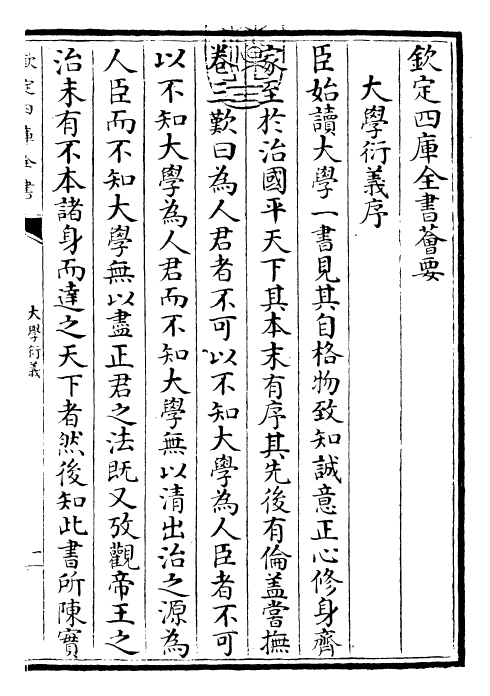 欽定四庫全書薈要
大學衍義序
臣始讀大學一書見其自格物致知誠意正心修身齊
家至於治國平天下其本末有序其先後有倫蓋嘗撫
卷三歎曰為人君者不可以不知大學為人臣者不可
以不知大學為人君而不知大學無以清出治之源為
人臣而不知大學無以盡正君之法既又攷觀帝王之
治未有不本諸身而達之天下者然後知此書所陳實
欽定四庫全書
大學衍義